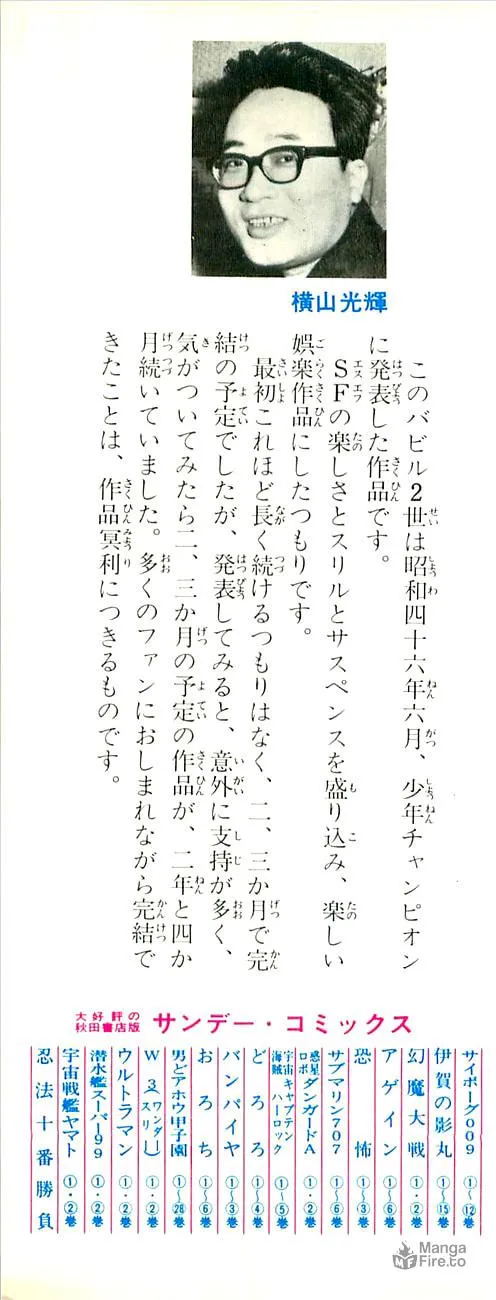 横山光輝
このバビル2世は昭和四十六年六月、少年チャンピオン
に発表した作品です。
SFの楽しさとスリルとサスペンスを盛り込み、楽しい
娯楽作品にしたつもりです。
最初これほど長く続けるつもりはなく、二、三か月で完
結の予定でしたが、発表してみると、意外に支持が多く、
気がついてみたら二、三か月の予定の作品が、二年と四か
月続いていました。多くのファンにおしまれながら完結で
きたことは、作品冥利につきるものです。
大好評の
秋田書店版
サンデー・コミックス
サイボーグ009 ①〜⑫巻
伊賀の影丸 ①〜⑮巻
幻魔大戦 ①・②巻
アゲイン ①〜⑥巻
恐怖 ①〜③巻
サブマリン707 ①〜⑥巻
惑星ロボ ダンガードA ①・②巻
宇宙海賊 キャプテンハーロック ①〜⑤巻
どろろ ①〜④巻
バンパイヤ ①〜③巻
おろち ①〜⑥巻
男どアホウ甲子園 ①〜㉘巻
W3(ワンダースリー) ①・②巻
ウルトラマン ①・②巻
潜水艦スーパー99 ①・②巻
宇宙戦艦ヤマト ①・②巻
忍法十番勝負
MangaFire.to